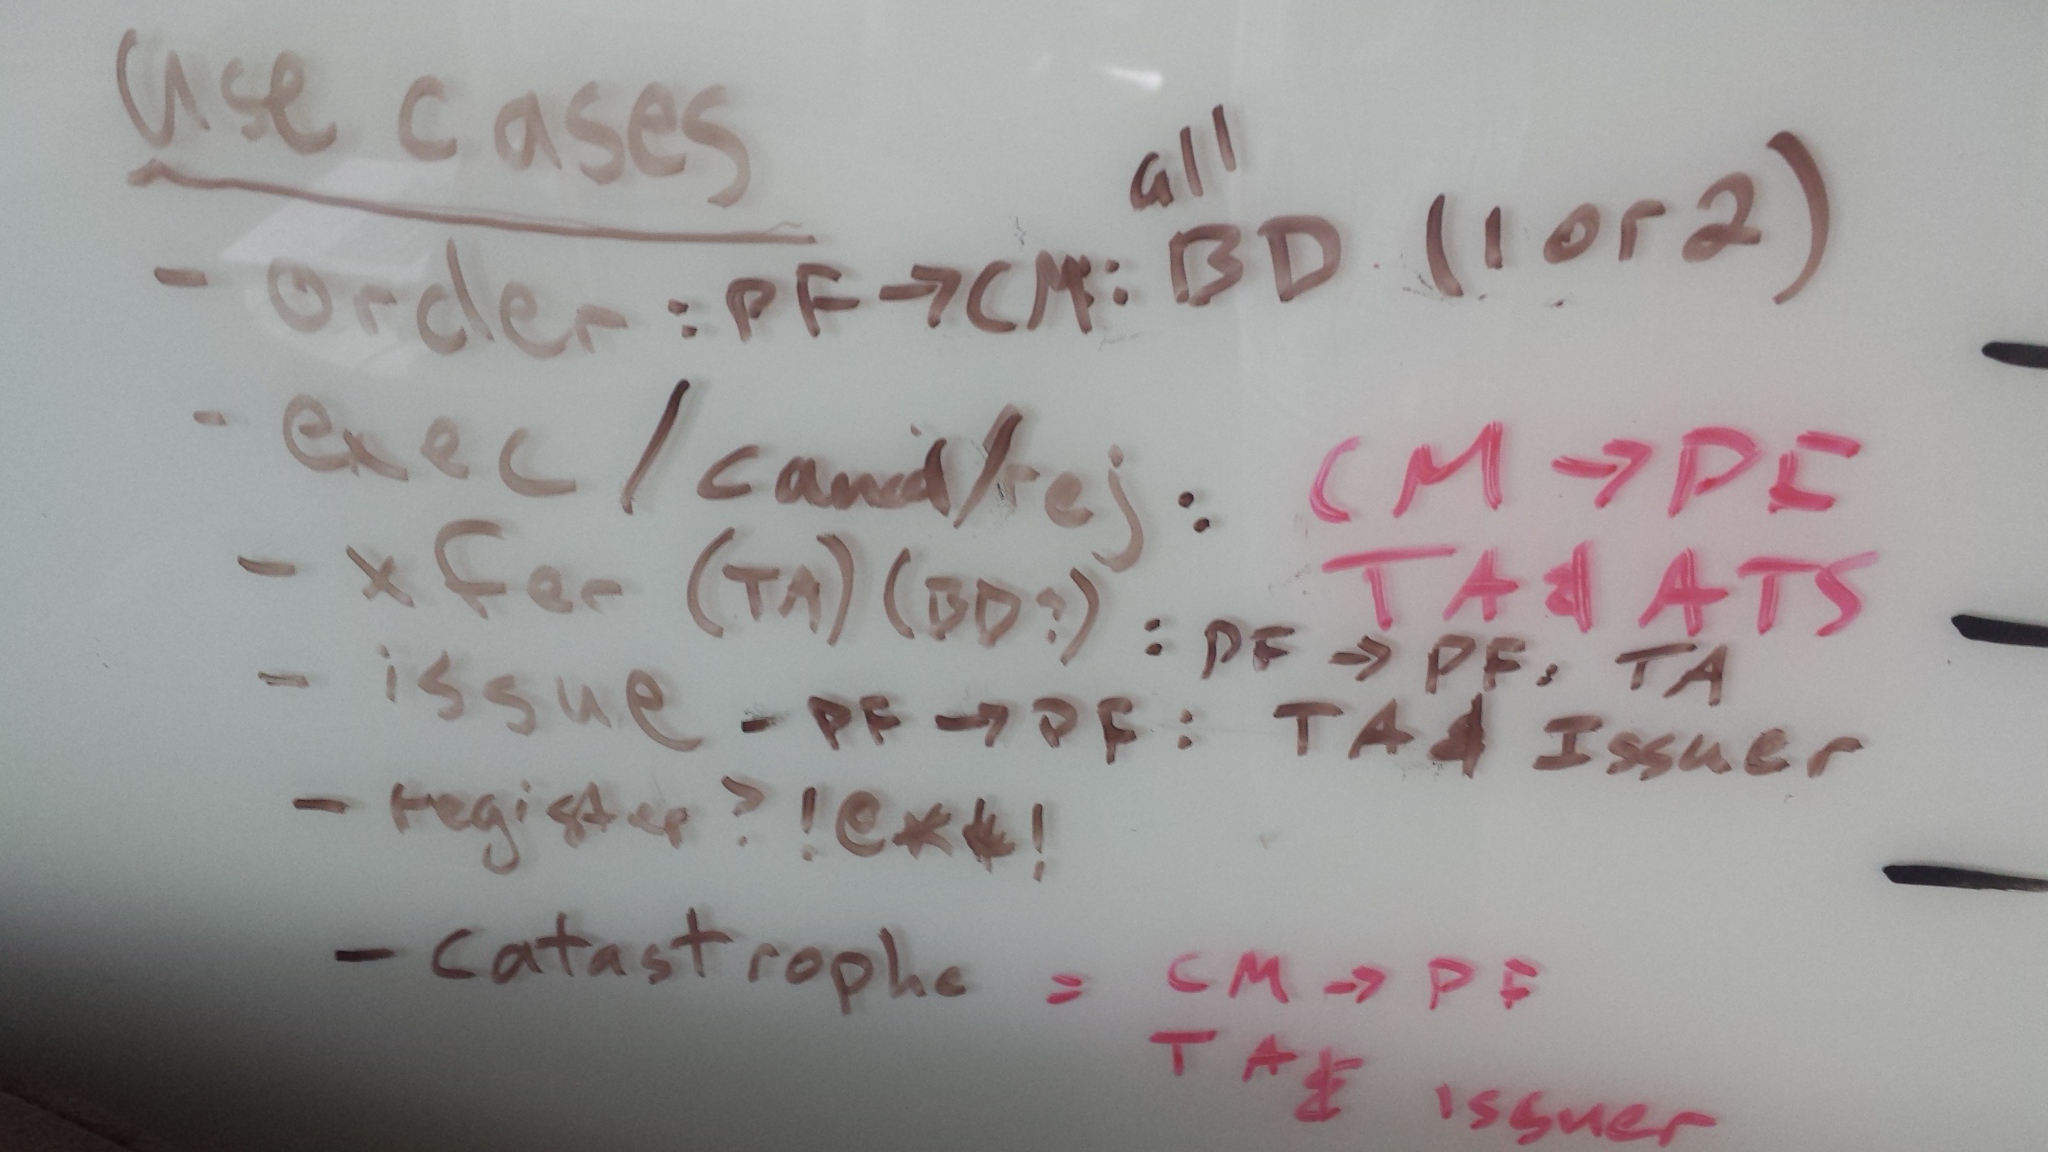 use cases
all
- order : PF → CM : BD (1 or 2)
- exec / cancel / rej : CM → PF
TA & ATS
- xfer (TA) (BD?) : PF → PF : TA
- issue - PF → PF : TA & Issuer
- register ? !@**!
- catastrophe = CM → PF
TA & issuer